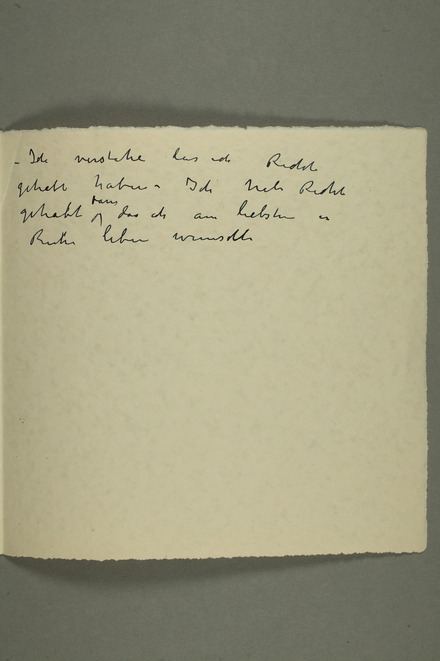 - Ich verstehe das ich Recht
gehabt haben - Ich habe Recht
gehabt dass das ich am liebsten in
Berlin leben wünsche